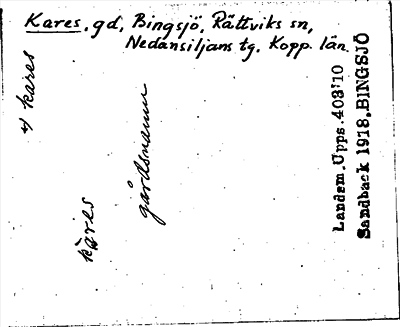 Kares. gd, Bingsjö, Rättviks sn,
Nedansiljans tg. Kopp. län.
kares
gårdsnamn
Landsm. Upps. 403:10
Sandback 1918. BINGSJÖ